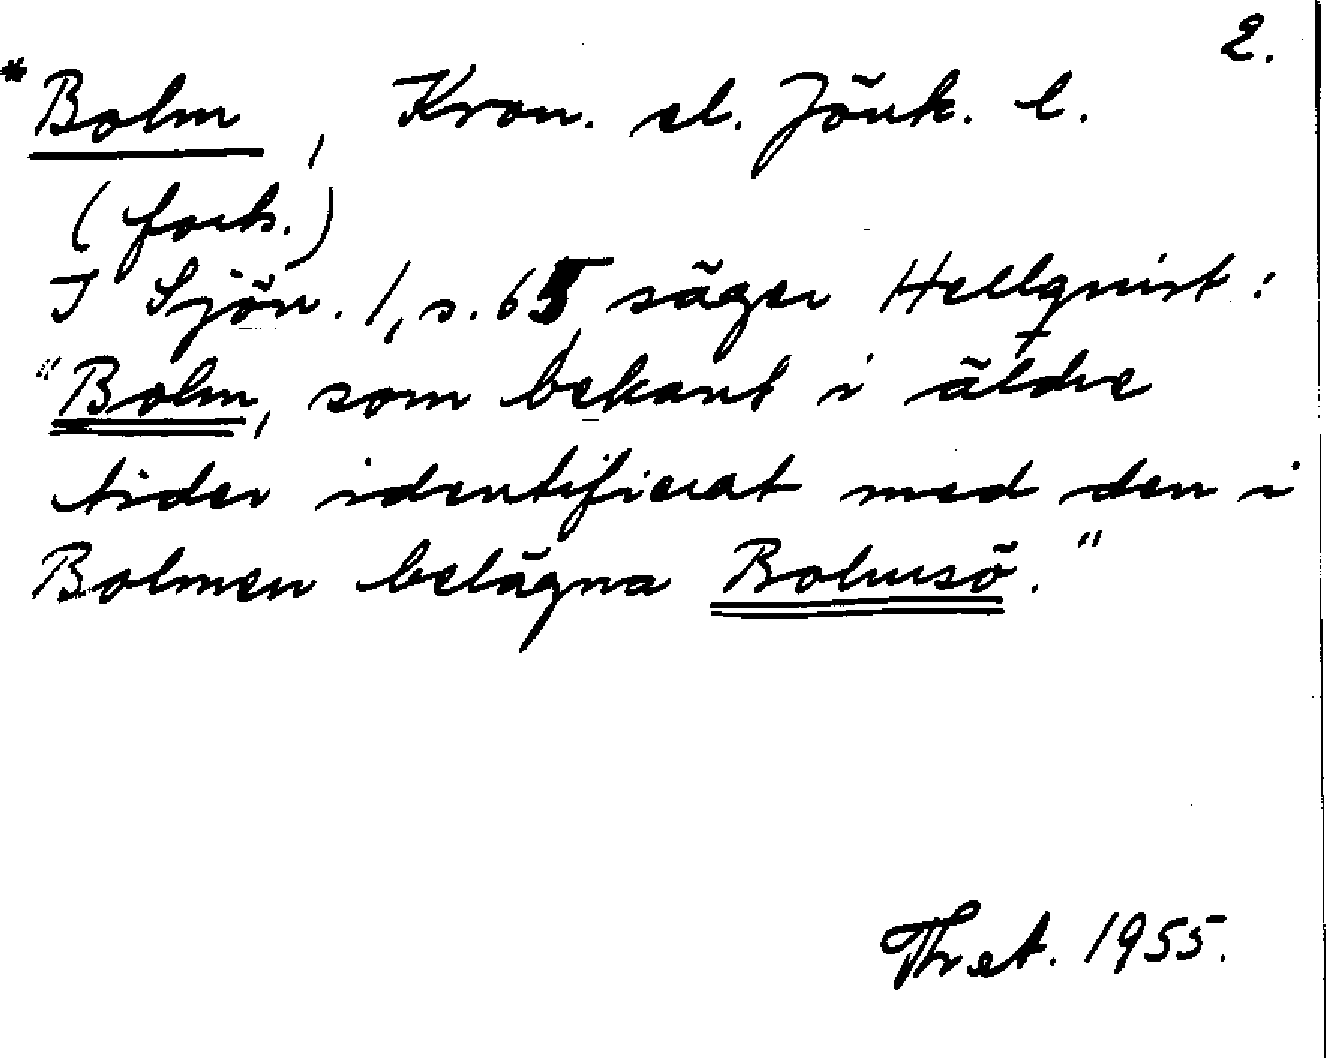 2.
*Bolm, Kron. el. Jönk. l.
(forts.)
I Sjön. 1, s. 65, säger Hellquist:
"Bolm, som bekant i äldre
tider identifierat med den i
Bolmen belägna Bolmsö."
1955.